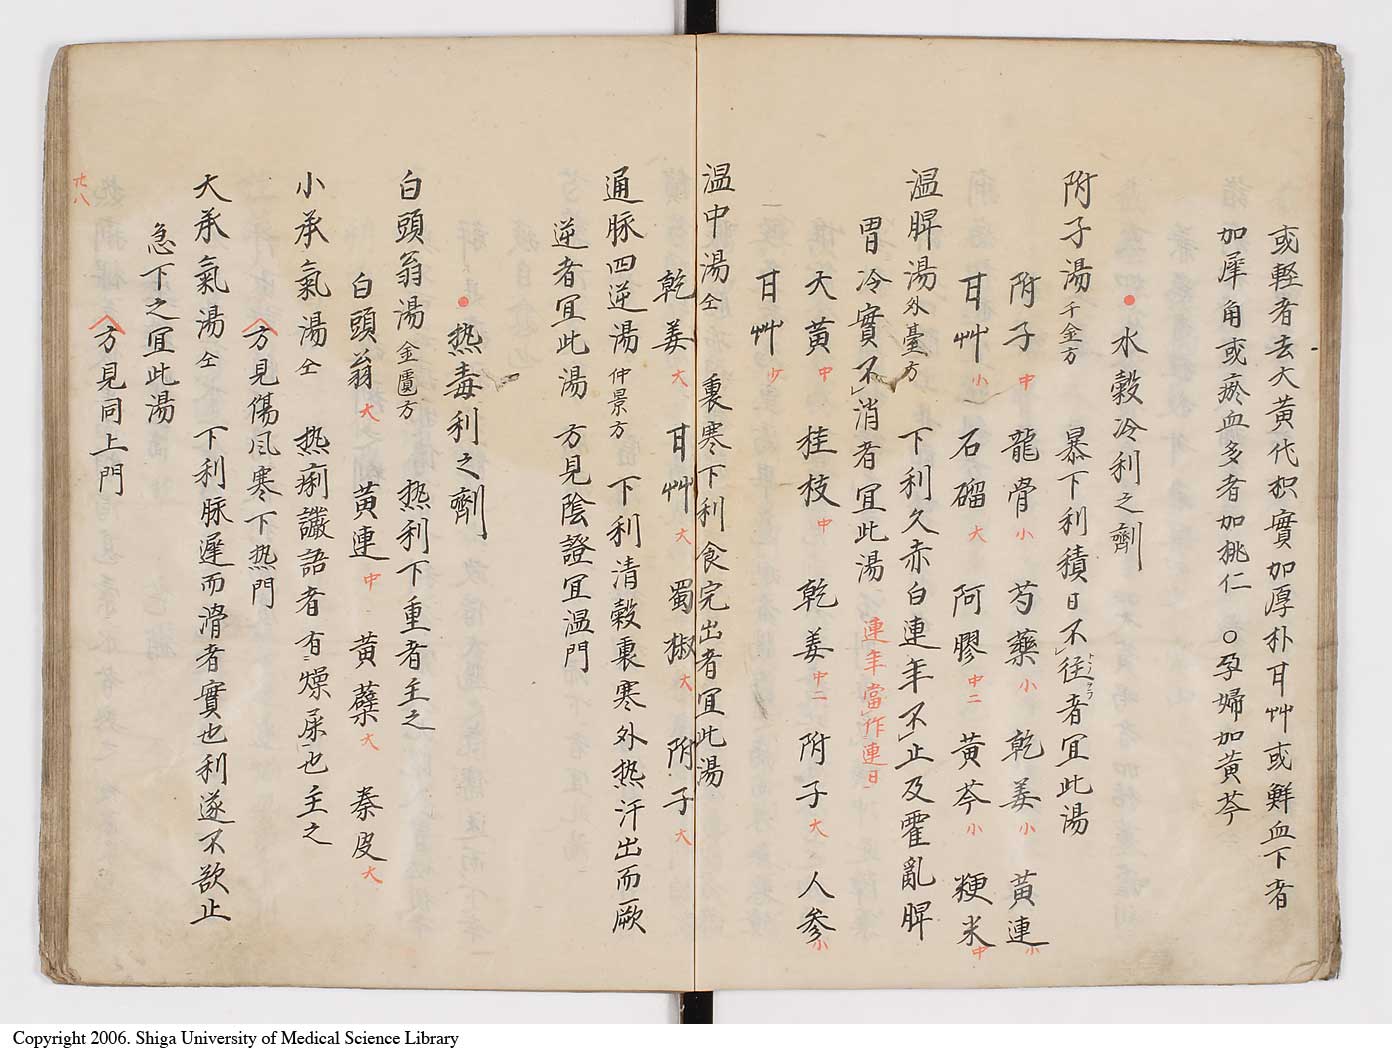 或軽者去大黄代枳實加厚朴甘艸或鮮血下者
加犀角或瘀血多者加桃仁 ○孕婦加黄芩
●水穀冷利之劑
附子湯千金方 暴下利積日不」住者宜此湯
附子中 龍骨小 芍藥小 乾姜小 黄連小
甘艸小一 石磂大 阿膠中二 黄芩小 粳米中
温脾湯外臺方 下利久赤白連年不」止及霍亂脾
胃冷實不」消者宜此湯 連年當」作連日
大黄中 桂枝中 乾姜中二 附子大 人参小
甘艸少
温中湯仝 裏寒下利食完出者宜此湯
乾姜大 甘艸大 蜀椒大 附子大
通脉四逆湯仲景方 下利清穀裏寒外热汗出而厥
逆者宜此湯 方見陰證宜温門
●热毒利之劑
白頭翁湯金匱方 热利下重者主之
白頭翁大 黄連中 黄蘗大 秦皮大
小承氣湯仝 热痢讝語者有燥屎也主之
方見傷风寒下热門
大承氣湯仝 下利脉遲而滑者實也利遂不欲止
急下之宜此湯
方見同上門
廿八
Copyright 2006. Shiga University of Medical Science Library